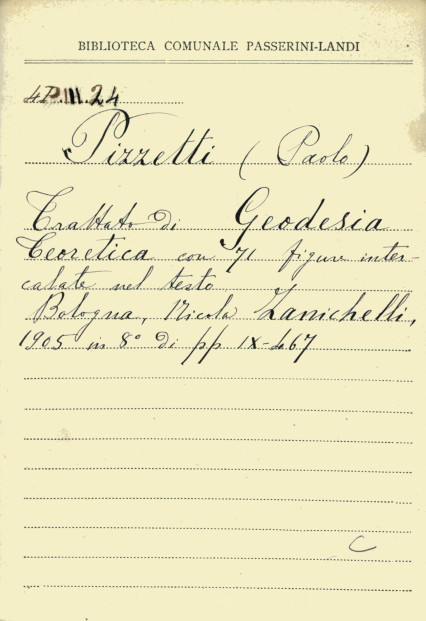 BIBLIOTECA COMUNALE PASSERINI-LANDI
4P.III.24
Pizzetti (Paolo)
Trattato di Geodesia
Teoretica con 71 figure inter-
calate nel testo
Bologna, Nicola Zanichelli,
1905 in 8° di pp IX-467
C